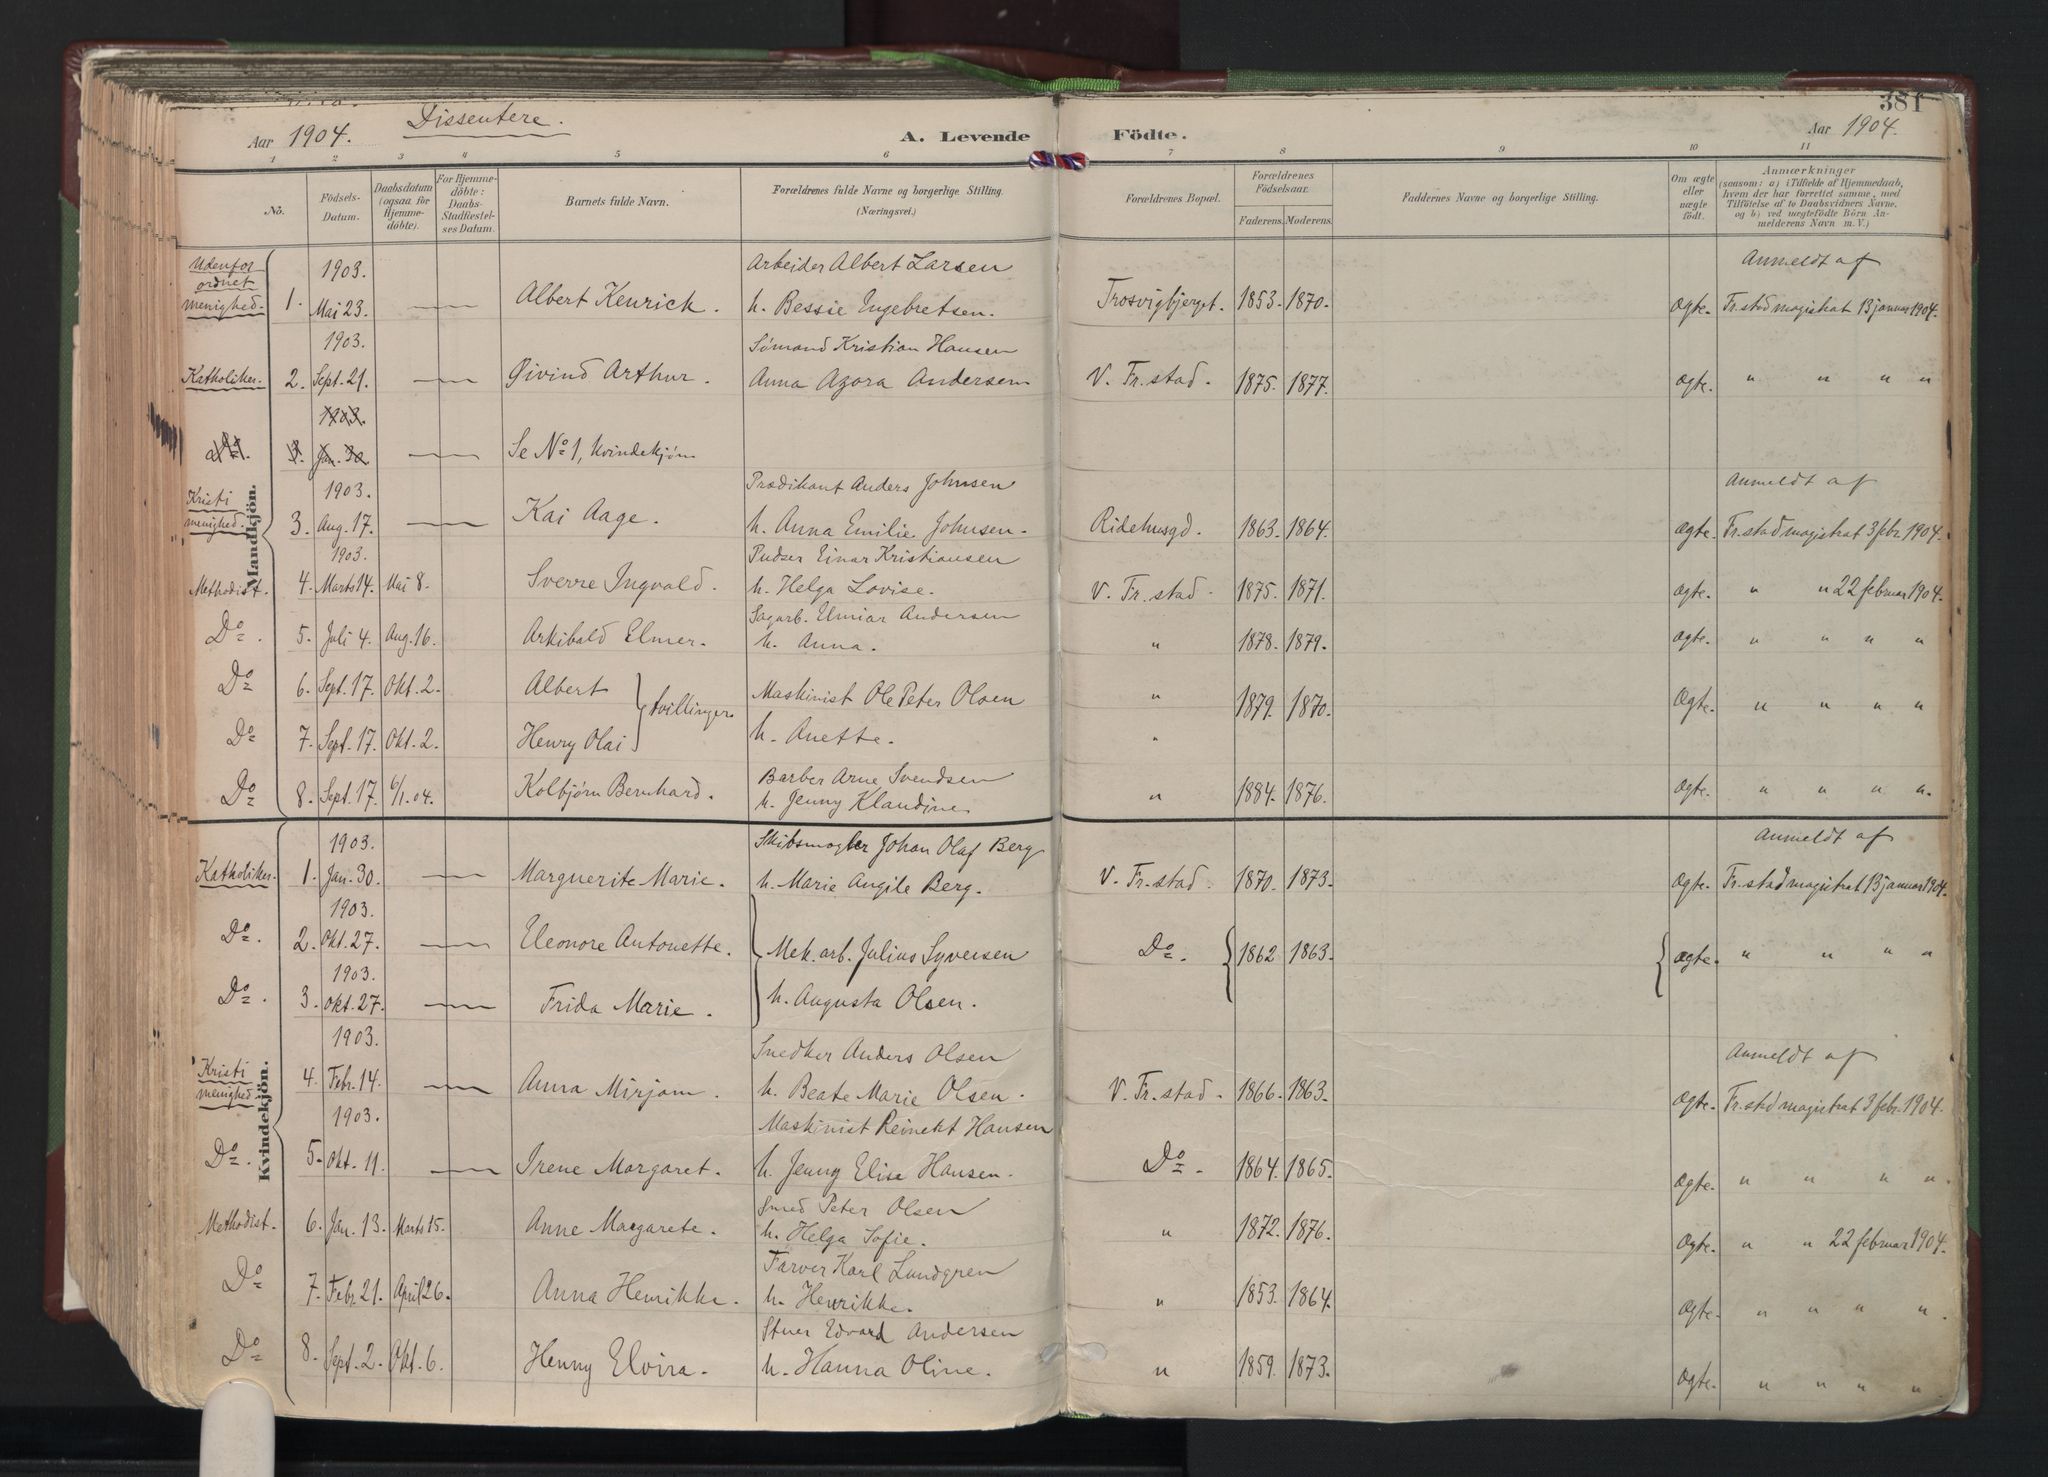 381
Aar 1904. Dissentere. A. Levende Födte. Aar 1904.
1 2 3 4 5 6 7 8 9 10 11
No.
Födsels-
Datum.
Daabsdatum
(ogsaa for
Hjemme-
döbte).
For Hjemme-
döbte:
Daabs-
Stadfæstel-
ses Datum.
Barnets fulde Navn.
Forældrenes fulde Navne og borgerlige Stilling.
(Næringsvei.)
Forældrenes Bopæl.
Forældrenes
Födselsaar.
Faderens. Moderens.
Faddernes Navne og borgerlige Stilling.
Om ægte
eller
uægte
födt.
Anmærkninger
(saasom: a) i Tilfælde af Hjemmedaab,
hvem der har forrettet samme, med
Tilföielse af to Daabsvidners Navne,
og b) ved uægtefödte Börn An-
melderens Navn m. V.)
Mandkjön.
Udenfor
ordnet
menighed.
1903.
Arbeider Albert Larsen
Anmeldt af
1. Mai 23. Albert Kenrick. h. Bessie Ingebretsen. Trosvigbjerget. 1853. 1870. Ægte. Fr.stad magistrat 13 januar 1904.
1903.
Sømand Kristian Hansen
Katholiker. 2. Sept. 21. Øivind Arthur. Anna Azora Andersen V. Fr.stad. 1875. 1877. Ægte. " " " "
1903.
3. Jan. 30. Se No 1, Kvindekjøn
Kristi
menighed.
1903.
Prædikant Anders Johnsen
Anmeldt af
3. Aug. 17. Kai Aage. h. Anna Emilie Johnsen. Ridehusgd. 1863. 1864. Ægte. Fr.stad magistrat 3 febr. 1904.
1903.
Pudser Einar Kristiansen
Methodist. 4. Marts 14. Mai 8. Sverre Ingvald. h. Helga Lovise. V. Fr.stad. 1875. 1871. Ægte. " " 22 februar 1904.
Sagarb. Elmiar Andersen
Do. 5. Juli 4. Aug. 16. Arkibald Elmer. h. Anna. " 1878. 1879. Ægte. " " " "
Do 6. Sept. 17. Okt. 2. Albert } tvillinger Maskinist Ole Peter Olsen " 1879. 1870. Ægte. " " " "
Do 7. Sept. 17. Okt. 2. Henry Olai h. Anette. "
Barber Arne Svendsen
Do 8. Sept. 17. 6/1.04. Kolbjørn Bernhard. h. Jenny Klaudine " 1884. 1876. Ægte. " " " "
Kvindekjön.
1903.
Skibsmægler Johan Olaf Berg
Anmeldt af
Katholiker. 1. Jan. 30. Marguerite Marie. h. Marie Angile Berg. V. Fr.stad. 1870. 1873. Ægte. Fr.stad magistrat 13 januar 1904.
1903.
Do. 2. Okt. 27. Eleonore Antonette. Mek. arb. Julius Syversen Do. 1862 1863. Ægte. " " " "
1903.
Do. 3. Okt. 27. Frida Marie. h. Augusta Olsen.
1903.
Snedker Anders Olsen
Anmeldt af
Kristi
menighed
4. Febr. 14. Anna Mirjam. h. Beate Marie Olsen. V. Fr.stad. 1866. 1863. Ægte. Fr.stad magistrat 3 febr. 1904.
1903.
Maskinist Reinekt Hansen
Do. 5. Okt. 11. Irene Margaret. h. Jenny Elise Hansen. Do. 1864. 1865. Ægte. " " " "
Smed Peter Olsen
Methodist. 6. Jan. 13. Marts 15. Anne Margarete. h. Helga Sofie. " 1872. 1876. Ægte. " " 22 februar 1904.
Farver Karl Lundgren
Do 7. Febr. 21. April 26. Anna Henrikke. h. Henrikke. " 1853. 1864. Ægte. " " " "
Stuer Edvard Andersen
Do 8. Sept. 2. Okt. 6. Henny Elvira. h. Hanna Oline. " 1859. 1873. Ægte. " " " "